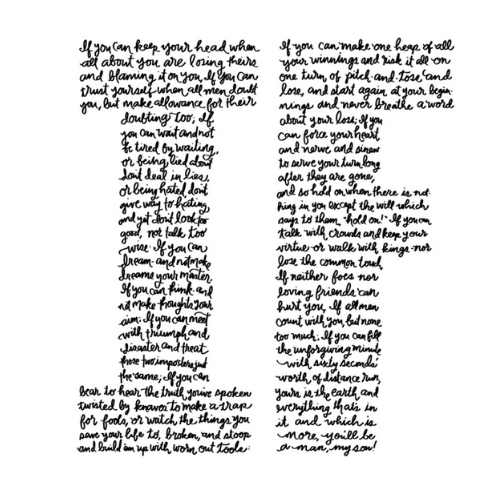 If you can keep your head when
all about you are losing theirs
and blaming it on you, If you can
trust yourself when all men doubt
you, but make allowance for their
doubting too; If
you can wait and not
be tired by waiting,
or being lied about
don't deal in lies,
or being hated don't
give way to hating,
and yet don't look too
good, nor talk too
wise. If you can
dream and not make
dreams your master.
If you can think and
not make thoughts your
aim. If you can meet
with triumph and
disaster and treat
those two imposters just
the same; If you can
bear to hear the truth you've spoken
twisted by knaves to make a trap
for fools, or watch the things you
gave your life to, broken, and stoop
and build em up with worn out tools:
If you can make one heap of all
your winnings and risk it all on
one turn of pitch-and-toss, and
lose, and start again at your begin-
nings and never breathe a word
about your loss; If you
can force your heart
and nerve and sinew
to serve your turn long
after they are gone,
and so hold on when there is not-
hing in you except the will which
says to them "hold on!" If you can
talk with crowds and keep your
virtue or walk with kings-nor
lose the common touch
If neither foes nor
loving friends can
hurt you, If all men
count with you but none
too much; If you can fill
the unforgiving minute
with sixty seconds
worth of distance run,
yours is the earth and
everything that's in
it and which is
more, you'll be
a man, my son!